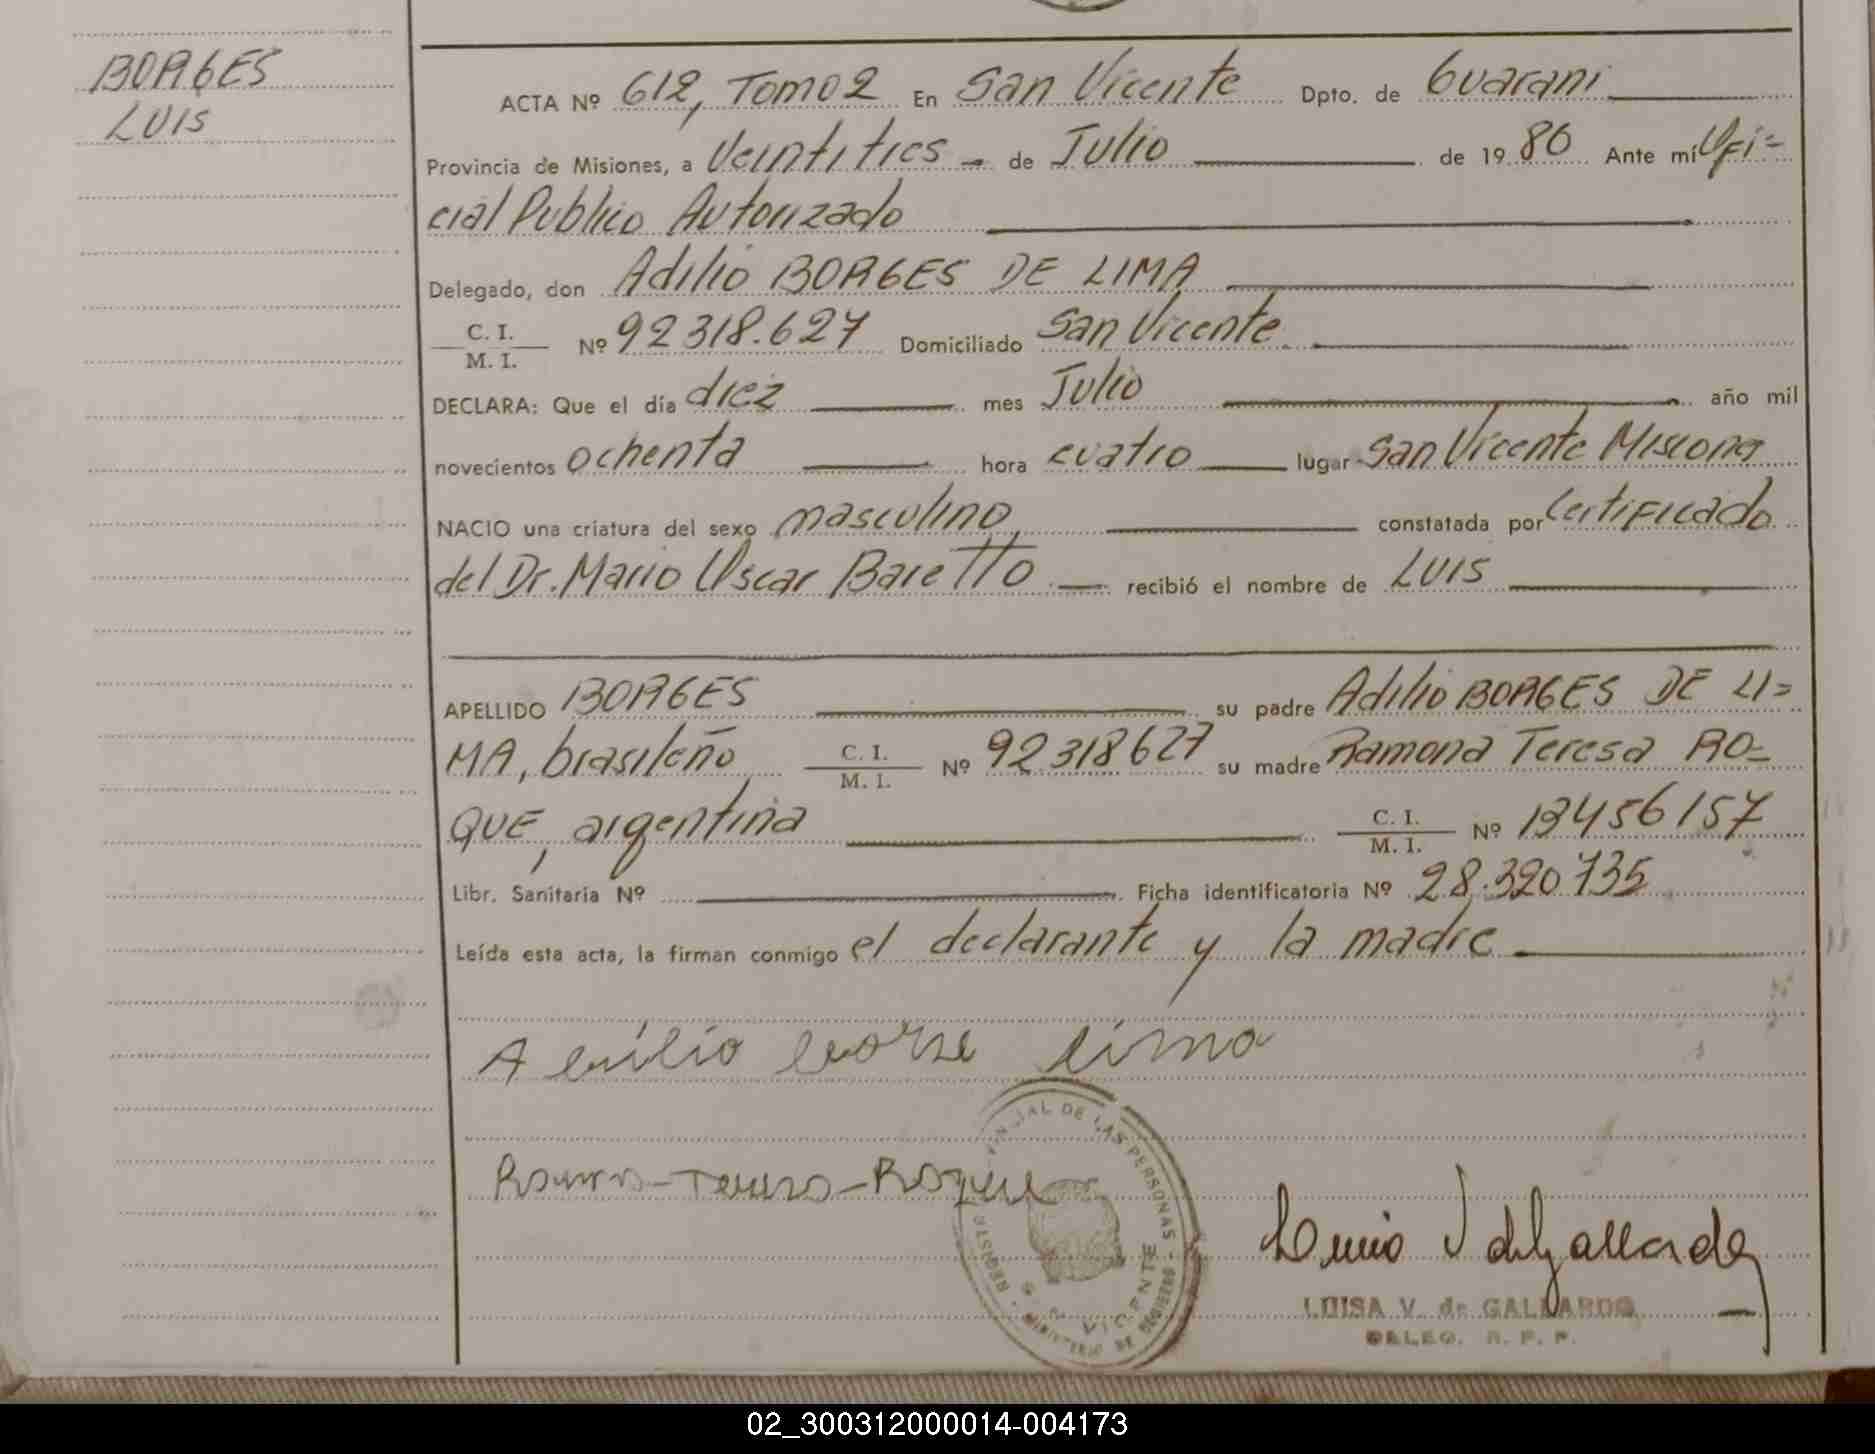 BORGES
LUIS
ACTA Nº 612, Tomo 2 En San Vicente Dpto. de Guarani
Provincia de Misiones, a Veintitres de Julio de 1980 Ante mí Ofi=
cial Publico Autorizado
Delegado, don Adilio BORGES DE LIMA
C. I.
M. I. Nº 92318.627 Domiciliado San Vicente
DECLARA: Que el día diez mes Julio año mil
novecientos ochenta hora cuatro lugar San Vicente Misiones
NACIO una criatura del sexo masculino, constatada por Certificado
del Dr. Mario Oscar Baretto recibió el nombre de LUIS
APELLIDO BORGES su padre Adilio BORGES DE LI=
MA, brasileño C. I.
M. I. Nº 92318627 su madre Ramona Teresa RO=
QUE, argentina C. I.
M. I. Nº 13456157
Libr. Sanitaria Nº Ficha identificatoria Nº 28.320.735
Leída esta acta, la firman conmigo el declarante y la madre
lima
Teresa-Roque
REGISTRO PROVINCIAL DE LAS PERSONAS
MINISTERIO DE
S. VICENTE
LUISA V. de GALLARDO
DELEG. R. P. P.
02_300312000014-004173